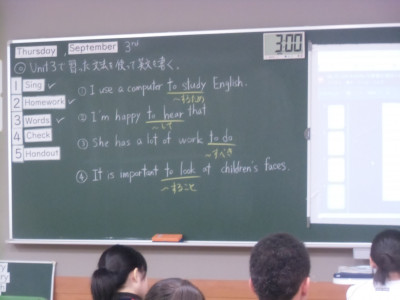 Thursday, September 3rd
3:00
◎ Unit3で習った文法を使って英文を書く。
1 Sing ✓
2 Homework ✓
3 Words ✓
4 Check
5 Handout
① I use a computer to study English.
~するため
② I'm happy to hear that
~して
③ She has a lot of work to do
~すべき
④ It is important to look at children's faces.
~すること